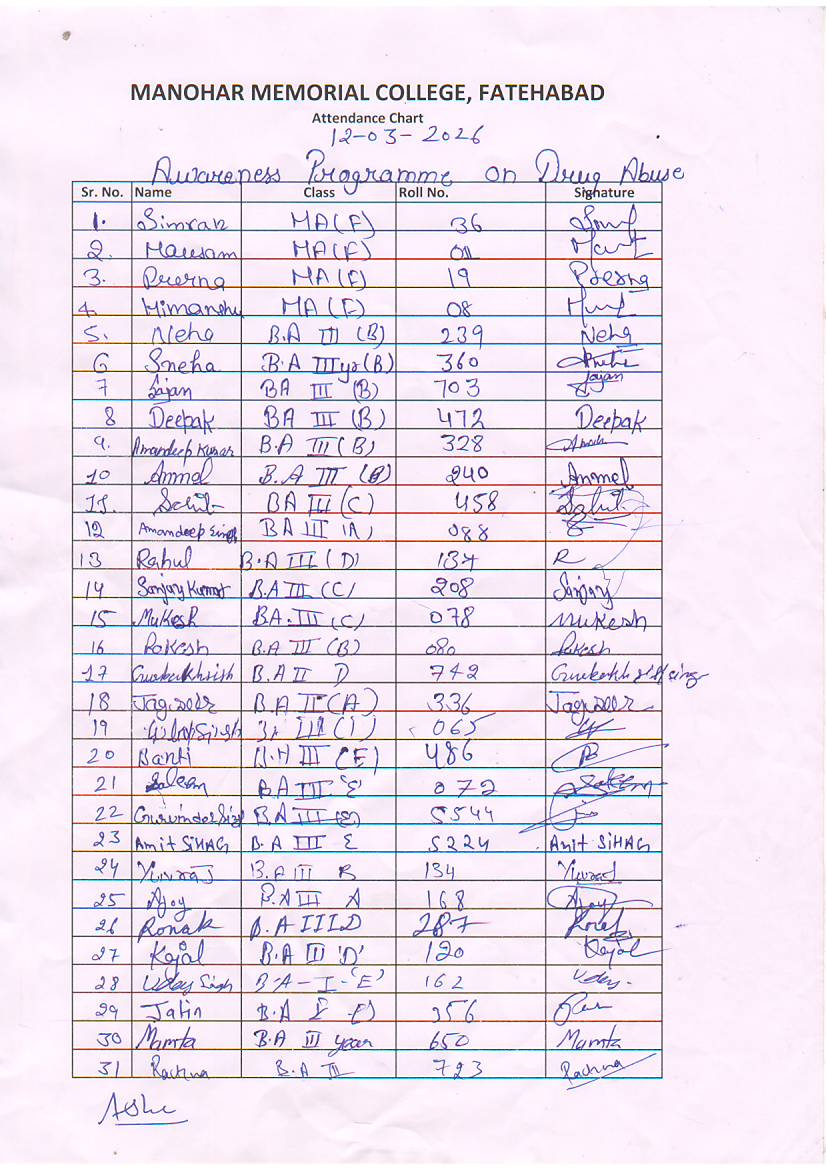 MANOHAR MEMORIAL COLLEGE, FATEHABAD
Attendance Chart
12-03-2026
Awareness Programme on Drug Abuse
Sr. No. Name Class Roll No. Signature
1. Simran MA(F) 36
2. Mausam MA(F) 01
3. Prerna MA(F) 19 Prerna
4. Himanshu MA(F) 08
5. Neha B.A III (B) 239 Neha
6 Sneha B.A III yr (B) 360
7 Sajan BA III (B) 703 Sajan
8 Deepak BA III (B) 472 Deepak
9. Amandeep Kumar B.A III (B) 328
10 Anmol B.A III (B) 240 Anmol
11. Sahil BA III (C) 458 Sahil
12 Amandeep Singh BA III (A) 088
13 Rahul B.A III (D) 134 R
14 Sanjay Kumar B.A III (C) 208 Sanjay
15 Mukesh BA.III (C) 078 Mukesh
16 Rakesh B.A III (B) 080 Rakesh
17 B.A II D 742
18 Jagseer B.A II (A) 336 Jagseer
19 065
20 Banti III (E) 486 B
21 Saleem BA III 'E' 072 Saleem
22 Gurvinder B.A III (E) 5544
23 Amit SiHAG B.A III E 5224 Amit SiHAG
24 Yuvraj B.A III B 134 Yuvraj
25 Ajay B.A III A 168 Ajay
26 Ronak B.A III D 287 Ronak
27 Kajal B.A III 'D' 120 Kajal
28 Uday Singh B-A-I-'E' 162 Uday.
29 Jatin B.A 356
30 Mamta B.A III year 650 Mamta
31 Rachna B.A III 723 Rachna